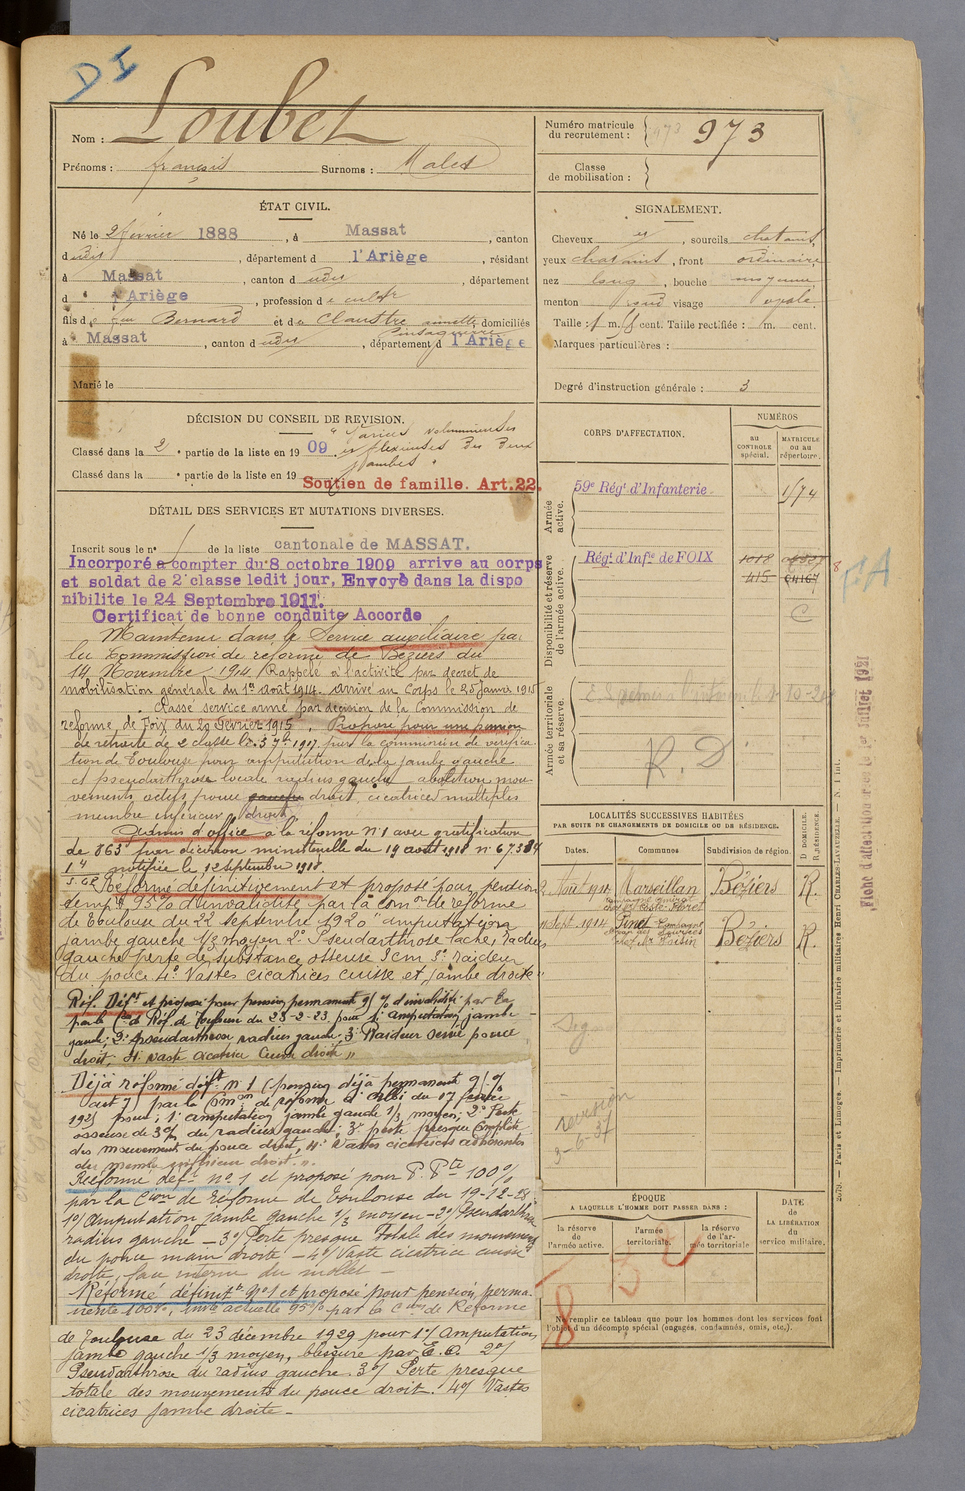 DI
Nom : Loubet
Prénoms : françois Surnoms : Malet
ÉTAT CIVIL.
Né le 2 février 1888, à Massat, canton
dudit, département d l'Ariège, résidant
à Massat, canton d udit, département
d l'Ariège, profession de cultr
fils de feu Bernard et de Claustre domiciliés
à Massat, canton d udit, département d l'Ariège
Marié le
DÉCISION DU CONSEIL DE REVISION.
Classé dans la 2e partie de la liste en 1909. "Varices volumineuses
et flexueuses des deux
jambes"
Classé dans la e partie de la liste en 19
Soutien de famille. Art.22.
DÉTAIL DES SERVICES ET MUTATIONS DIVERSES.
Inscrit sous le n° de la liste cantonale de MASSAT.
Incorporé a compter du 8 octobre 1909 arrive au corps
et soldat de 2e classe ledit jour, Envoyé dans la dispo
nibilite le 24 Septembre 1911.
Certificat de bonne conduite Accorde
Maintenu dans le Service auxiliaire par
la Commission de réforme de Béziers du
14 Novembre 1914 Rappelé à l'activité par décret de
mobilisation générale du 1er août 1914. arrivé au Corps le 25 Janvier 1915
Classé service armé par décision de la Commission de
réforme de Foix du 20 Février 1915. Proposé pour une pension
de retraite de 2 classe le 5 7bre 1917 par la commission de vérifica-
tion de Toulouse pour amputation de la jambe gauche
et pseudarthrose locale radius gauche abolition mou-
vements actifs pouce gauche droit, cicatrices multiples
membre inférieur droit
Admis d'office à la réforme n°1 avec gratification
de 863 par décision ministérielle du 19 août 1918 n° 67.384
notifiée le 12 septembre 1918.
Réformé définitivement et proposé pour pension
temp. 95% d'invalidité par la Comon de réforme
de Toulouse du 22 septembre 1920 "amputation
jambe gauche 1/3 moyen 2° Pseudarthrose lâche, radius
gauche perte de substance osseuse 3cm 3° raideur
du pouce 4° Vastes cicatrices cuisse et jambe droite"
Réf. Déft et proposé pour pension permanente 95% d'invalidité par la
Con de Réf. de Toulouse du 23-2-23 pour 1° amputation jambe
gauche; 2° Pseudarthrose radius gauche; 3° Raideur serrée pouce
droit, 4° vaste cicatrice cuisse droite"
Déjà réformé déft n°1 (pension déjà permanente 95%
par la Comon de réforme d'Albi du 17 février
pour: 1° amputation jambe gauche 1/3 moyen; 2° Perte
osseuse de 3% du radius gauche; 3° perte presque complète
des mouvement du pouce droit, 4° Vastes cicatrices adhérentes
du membre inférieur droit.".
Réformé déft n°1 et proposé pour P. Pte 100%
par la Cion de Réforme de Toulouse du 19-12-28
1°/ Amputation jambe gauche 1/3 moyen - 2°/ Pseudarthrose
radius gauche - 3°/ Perte presque Totale des mouvements
du pouce main droite - 4°/ Vaste cicatrice cuisse
droite, face interne du mollet -
Réformé définitt N°1 et proposé pour pension perma-
nente 100%, invté actuelle 95% par la Cion de Réforme
de Toulouse du 23 décembre 1929 pour 1°/ Amputation
jambe gauche 1/3 moyen, blessure par E.O. 2°/
Pseudarthrose du radius gauche. 3°/ Perte presque
totale des mouvements du pouce droit. 4°/ Vastes
cicatrices jambe droite -
Numéro matricule
du recrutement : 973
Classe
de mobilisation :
SIGNALEMENT.
Cheveux et, sourcils chatains,
yeux chatains, front ordinaire
nez long, bouche moyenne
menton rond visage ovale
Taille : 1 m. cent. Taille rectifiée : m. cent.
Marques particulières :
Degré d'instruction générale : 3
CORPS D'AFFECTATION.
NUMÉROS
AU
CONTROLE
spécial.
MATRICULE
OU AU
répertoire.
Armée
active.
59e Régt d'Infanterie. 1174
Disponibilité et réserve
de l'armée active.
Régt d'Infie de FOIX 1018
415 04167
C
FA
Armée territoriale
et sa réserve.
R.D
Fiche d'affectation arrêtée le 1er Juillet 1921
LOCALITÉS SUCCESSIVES HABITÉES
PAR SUITE DE CHANGEMENTS DE DOMICILE OU DE RÉSIDENCE.
Dates. Communes Subdivision de région. D. DOMICILE. R. RÉSIDENCE.
Août 1912 Marseillan Béziers R.
Sept. 1912 Pinet Béziers R.
révision
3-6-37
ÉPOQUE
A LAQUELLE L'HOMME DOIT PASSER DANS :
la réserve
de
l'armée active.
l'armée
territoriale.
la réserve
de l'ar-
mée territoriale
DATE
de
LA LIBÉRATION
du
service militaire.
Ne remplir ce tableau que pour les hommes dont les services font
l'objet d'un décompte spécial (engagés, condamnés, omis, etc.).
Paris et Limoges. — Imprimerie et librairie militaires Henri CHARLES-LAVAUZELLE. — N. 1 int.